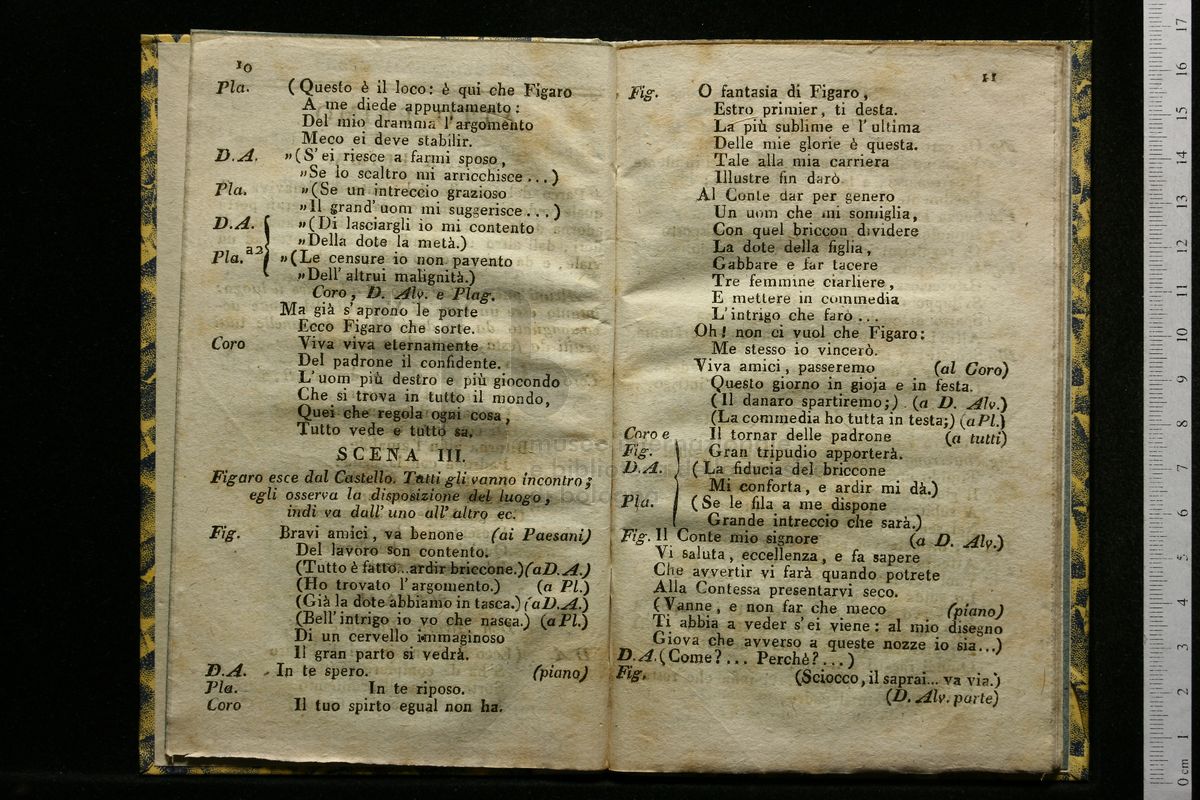 10
Pla. (Questo è il loco: è qui che Figaro
A me diede appuntamento:
Del mio dramma l'argomento
Meco ei deve stabilir.
D.A. „(S'ei riesce a farmi sposo,
„Se lo scaltro mi arricchisce...)
Pla. „(Se un intreccio grazioso
„Il grand'uom mi suggerisce...)
D.A. „(Di lasciargli io mi contento
„Della dote la metà.)
a2
Pla. „(Le censure io non pavento
„Dell'altrui malignità.)
Coro, D. Alv. e Plag.
Ma già s'aprono le porte
Ecco Figaro che sorte.
Coro Viva viva eternamente
Del padrone il confidente.
L'uom più destro e più giocondo
Che si trova in tutto il mondo,
Quei che regola ogni cosa,
Tutto vede e tutto sa.
SCENA III.
Figaro esce dal Castello. Tutti gli vanno incontro;
egli osserva la disposizione del luogo,
indi va dall'uno all'altro ec.
Fig. Bravi amici, va benone (ai Paesani)
Del lavoro son contento.
(Tutto è fatto...ardir briccone.) (a D.A.)
(Ho trovato l'argomento.) (a Pl.)
(Già la dote abbiamo in tasca.) (a D.A.)
(Bell'intrigo io vo che nasca.) (a Pl.)
Di un cervello immaginoso
Il gran parto si vedrà.
D.A. In te spero. (piano)
Pla. In te riposo.
Coro Il tuo spirto egual non ha.
11
Fig. O fantasia di Figaro,
Estro primier, ti desta.
La più sublime e l'ultima
Delle mie glorie è questa.
Tale alla mia carriera
Illustre fin darò.
Al Conte dar per genero
Un uom che mi somiglia,
Con quel briccon dividere
La dote della figlia,
Gabbare e far tacere
Tre femmine ciarliere,
E mettere in commedia
L'intrigo che farò...
Oh! non ci vuol che Figaro:
Me stesso io vincerò.
Viva amici, passeremo (al Coro)
Questo giorno in gioja e in festa.
(Il danaro spartiremo;) (a D. Alv.)
(La commedia ho tutta in testa;) (a Pl.)
Coro e Il tornar delle padrone (a tutti)
Fig. Gran tripudio apporterà.
D.A. (La fiducia del briccone
Mi conforta, e ardir mi dà.)
Pla. (Se le fila a me dispone
Grande intreccio che sarà.)
Fig. Il Conte mio signore (a D. Alv.)
Vi saluta, eccellenza, e fa sapere
Che avvertir vi farà quando potrete
Alla Contessa presentarvi seco.
(Vanne, e non far che meco (piano)
Ti abbia a veder s'ei viene: al mio disegno
Giova che avverso a queste nozze io sia...)
D.A. (Come?... Perchè?...)
Fig. (Sciocco, il saprai... va via.)
(D. Alv. parte)
museo internazionale
e biblioteca
bologna
0 cm 1 2 3 4 5 6 7 8 9 10 11 12 13 14 15 16 17